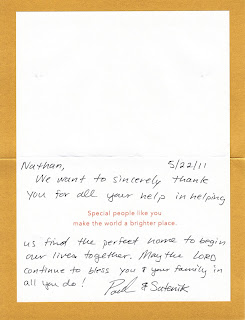 Nathan, 5/22/11
We want to sincerely thank
you for all your help in helping
Special people like you
make the world a brighter place.
us find the perfect home to begin
our lives together. May the LORD
continue to bless you & your family in
all you do! Paul & Satenik